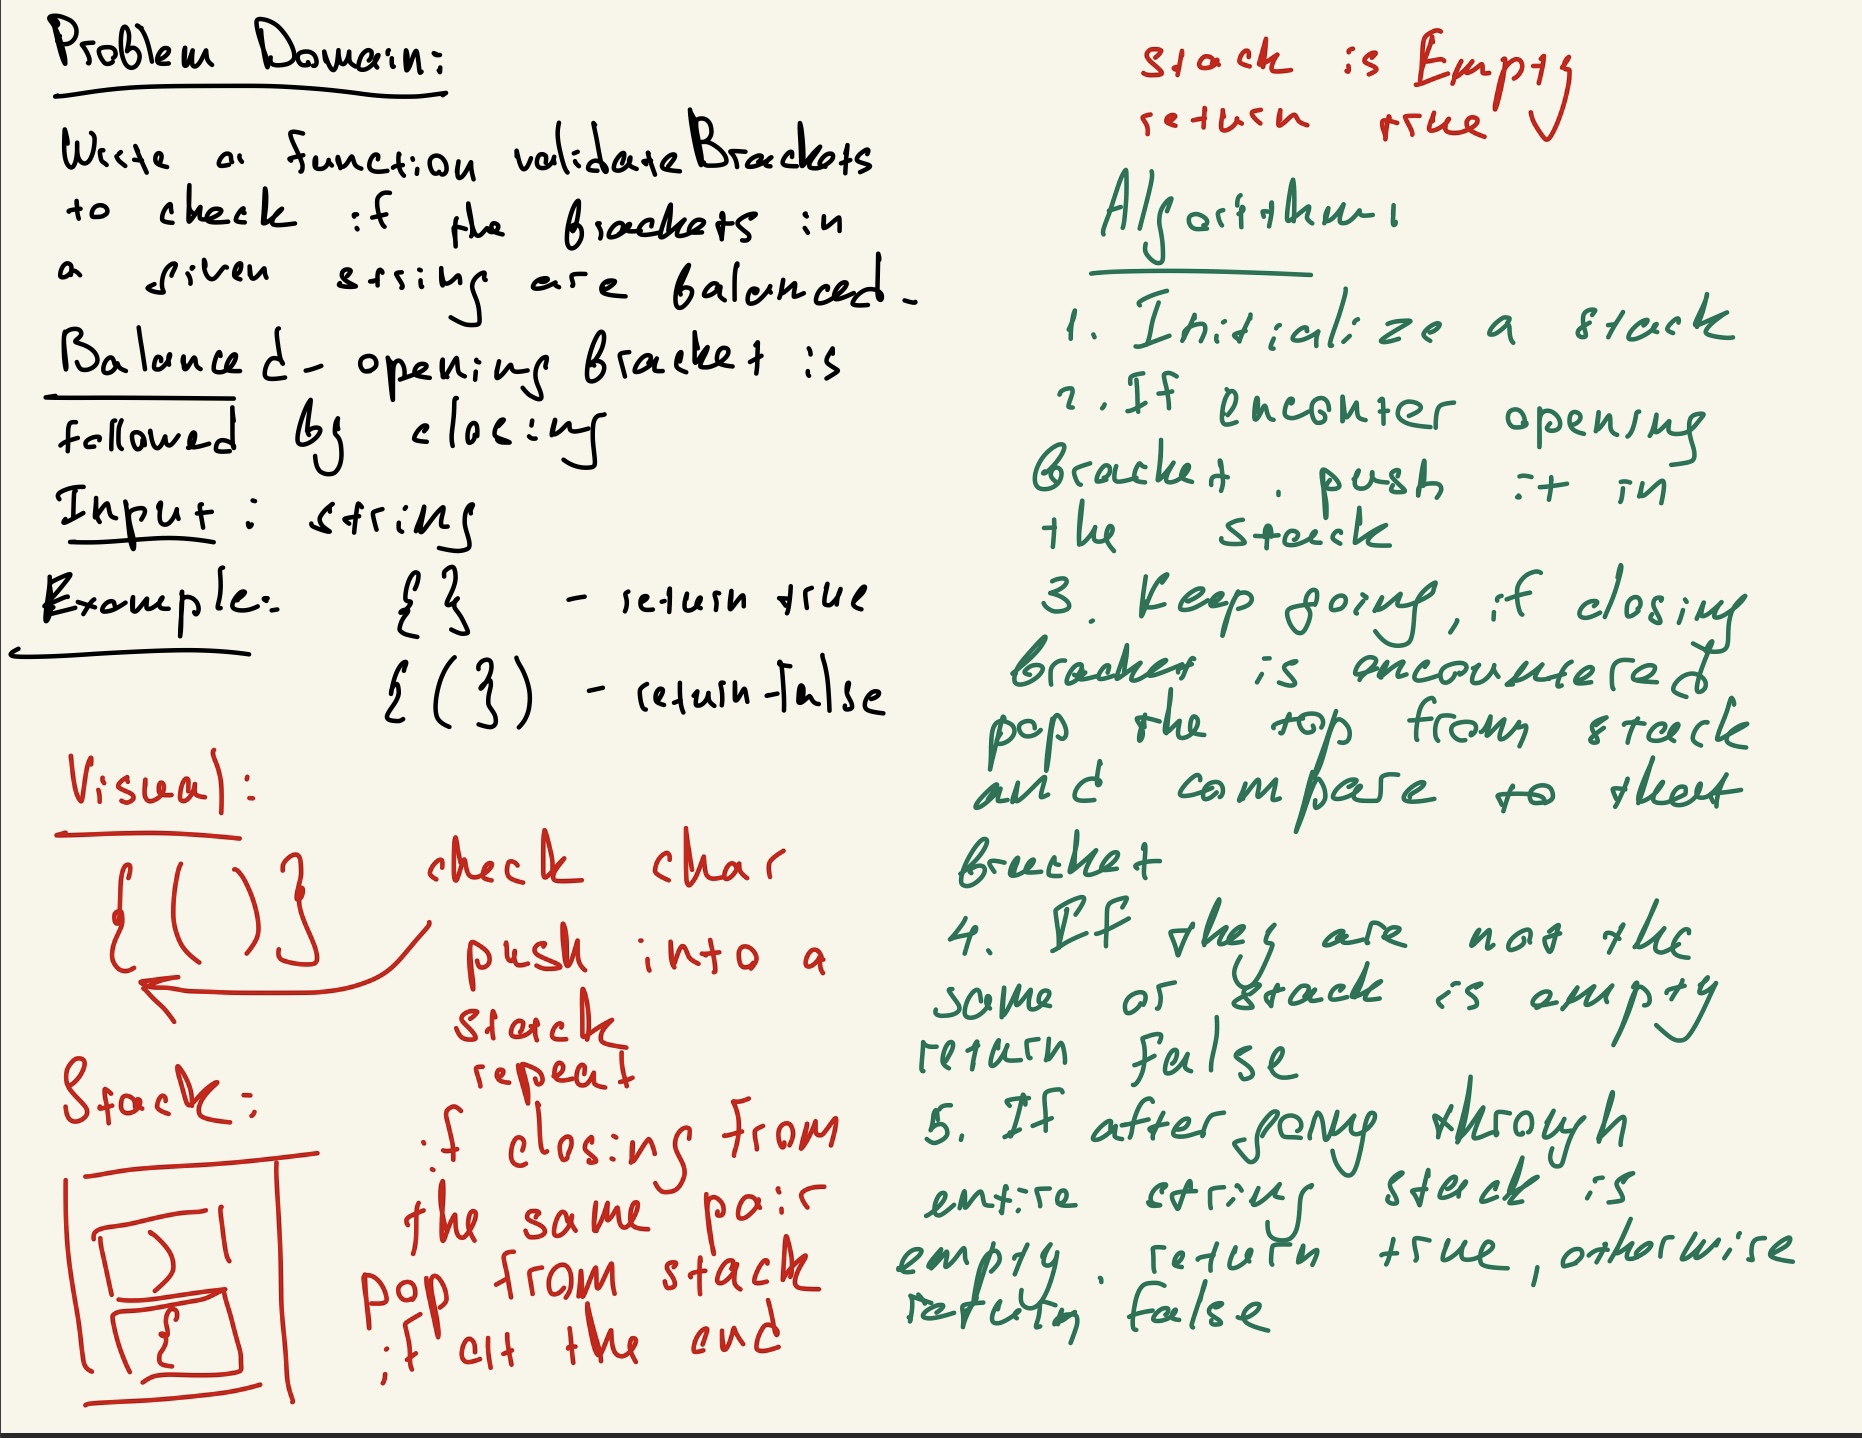 Problem Domain:
Write a function validateBrackets
to check if the brackets in
a given string are balanced.
Balanced - opening bracket is
followed by closing
Input: string
Example: {} - return true
{(}) - return false
Visual:
{()}
check char
push into a
stack
repeat
if closing from
the same pair
pop from stack
if at the end
Stack:
)
{
stack is Empty
return true
Algorithm:
1. Initialize a stack
2. If enconter opening
bracket. push it in
the stack
3. Keep going, if closing
bracket is encountered
pop the top from stack
and compare to that
bracket
4. If they are not the
same or stack is empty
return false
5. If after going through
entire string stack is
empty. return true, otherwise
return false